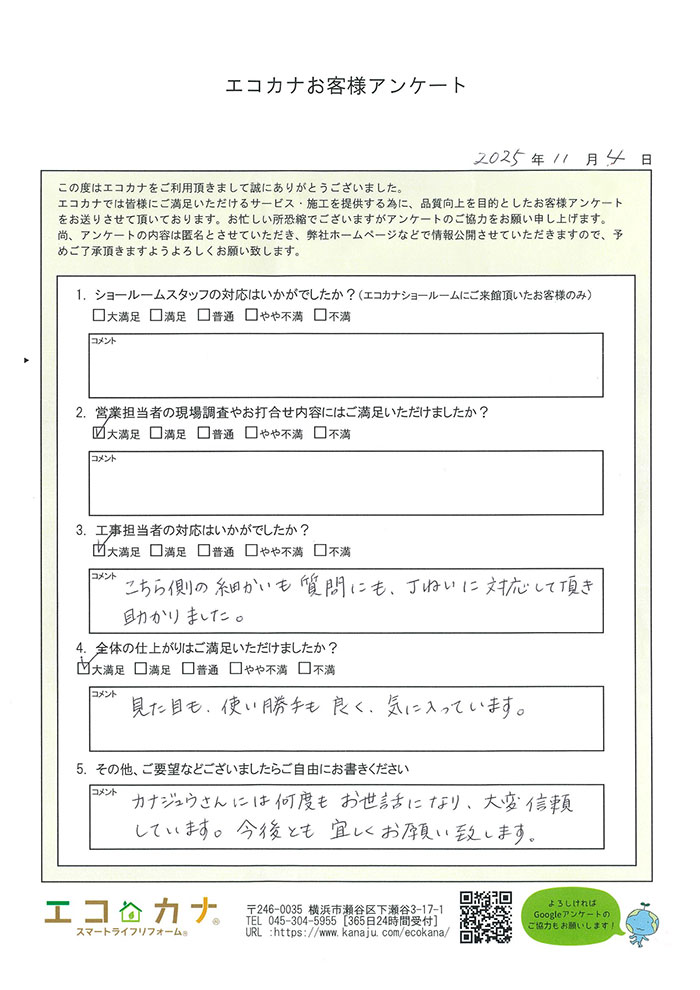 エコカナお客様アンケート
2025 年 11 月 4 日
この度はエコカナをご利用頂きまして誠にありがとうございました。
エコカナでは皆様にご満足いただけるサービス・施工を提供する為に、品質向上を目的としたお客様アンケート
をお送りさせて頂いております。お忙しい所恐縮でございますがアンケートのご協力をお願い申し上げます。
尚、アンケートの内容は匿名とさせていただき、弊社ホームページなどで情報公開させていただきますので、予
めご了承頂きますようよろしくお願い致します。
1. ショールームスタッフの対応はいかがでしたか？(エコカナショールームにご来館頂いたお客様のみ)
□大満足 □満足 □普通 □やや不満 □不満
コメント
2. 営業担当者の現場調査やお打合せ内容にはご満足いただけましたか？
☑大満足 □満足 □普通 □やや不満 □不満
コメント
3. 工事担当者の対応はいかがでしたか？
☑大満足 □満足 □普通 □やや不満 □不満
コメント
こちら側の細かいも質問にも、丁ねいに対応して頂き
助かりました。
4. 全体の仕上がりはご満足いただけましたか？
☑大満足 □満足 □普通 □やや不満 □不満
コメント
見た目も、使い勝手も良く、気に入っています。
5. その他、ご要望などございましたらご自由にお書きください
コメント
カナジュウさんには何度もお世話になり、大変信頼
しています。今後とも宜しくお願い致します。
エコカナ®
スマートライフリフォーム®
〒246-0035 横浜市瀬谷区下瀬谷3-17-1
TEL 045-304-5955 [365日24時間受付]
URL :https://www.kanaju.com/ecokana/
よろしければ
Googleアンケートの
ご協力もお願いします！